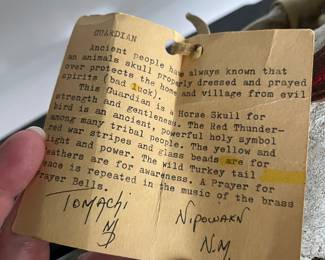 GUARDIAN
Ancient people have always known that
an animals skull properly dressed and prayed
over protects the home and village from evil
spirits (bad luck).
This Guardian is a Horse Skull for
strength and gentleness. The Red Thunder-
bird is an ancient, powerful holy symbol
among many tribal people. The yellow and
red war stripes and glass beads are for
light and power. The Wild Turkey tail
feathers are for awareness. A Prayer for
Peace is repeated in the music of the brass
Prayer Bells.
TOMACHI
NIPOWAKN
N.M.